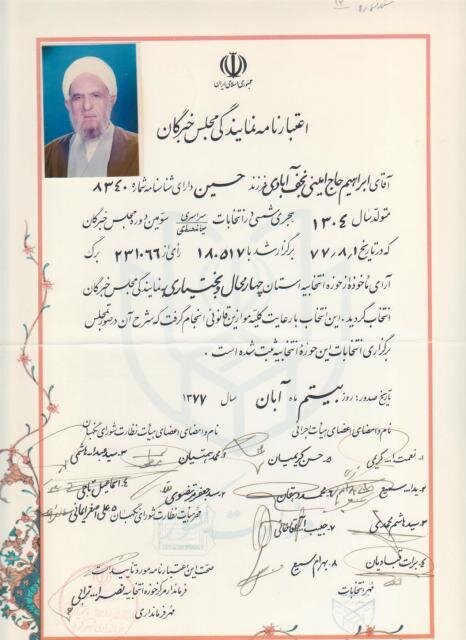 جمهوری اسلامی ایران
اعتبارنامه نمایندگی مجلس خبرگان
آقای ابراهیم حاج امینی نجف آبادی فرزند حسین دارای شناسنامه شماره ۸۳۴۰
متولد سال ۱۳۰۴ هجری شمسی در انتخابات سراسری میاندوره‌ای سومین دوره مجلس خبرگان
که در تاریخ ۷۷٫۸٫۱ برگزار شد با ۱۸۰۵۱۷ رأی از ۲۳۱۰۶۶ برگ
آرای مأخوذه از حوزه انتخابیه استان چهارمحال و بختیاری به نمایندگی مجلس خبرگان
انتخاب گردید. این انتخاب با رعایت کلیه موازین قانونی انجام گرفت که شرح آن در صورتمجلس
برگزاری انتخابات این حوزه انتخابیه ثبت شده است.
تاریخ صدور: روز بیستم ماه آبان سال ۱۳۷۷
نام و امضای اعضای هیأت اجرایی
نام و امضای اعضای هیأت نظارت شورای نگهبان
۱- نعمت اله کریمی
۵- حسن کریمیان
۲- یداله سمیع
۶- محمد دهقان
۳- سید هاشم محمدی
۷- حبیب اله آقاخانی
۴- برات قبادیان
۸- بهرام سمیع
۲- سید جعفر مرتضوی
۳- سید یداله هاشمی
۴- اسماعیل
مهر هیأت نظارت شورای نگهبان
۵- علی اصغر
صحت این اعتبارنامه مورد تأیید است
فرماندار مرکز حوزه انتخابیه نصراله ترابی
مهر فرمانداری
مهر انتخابات